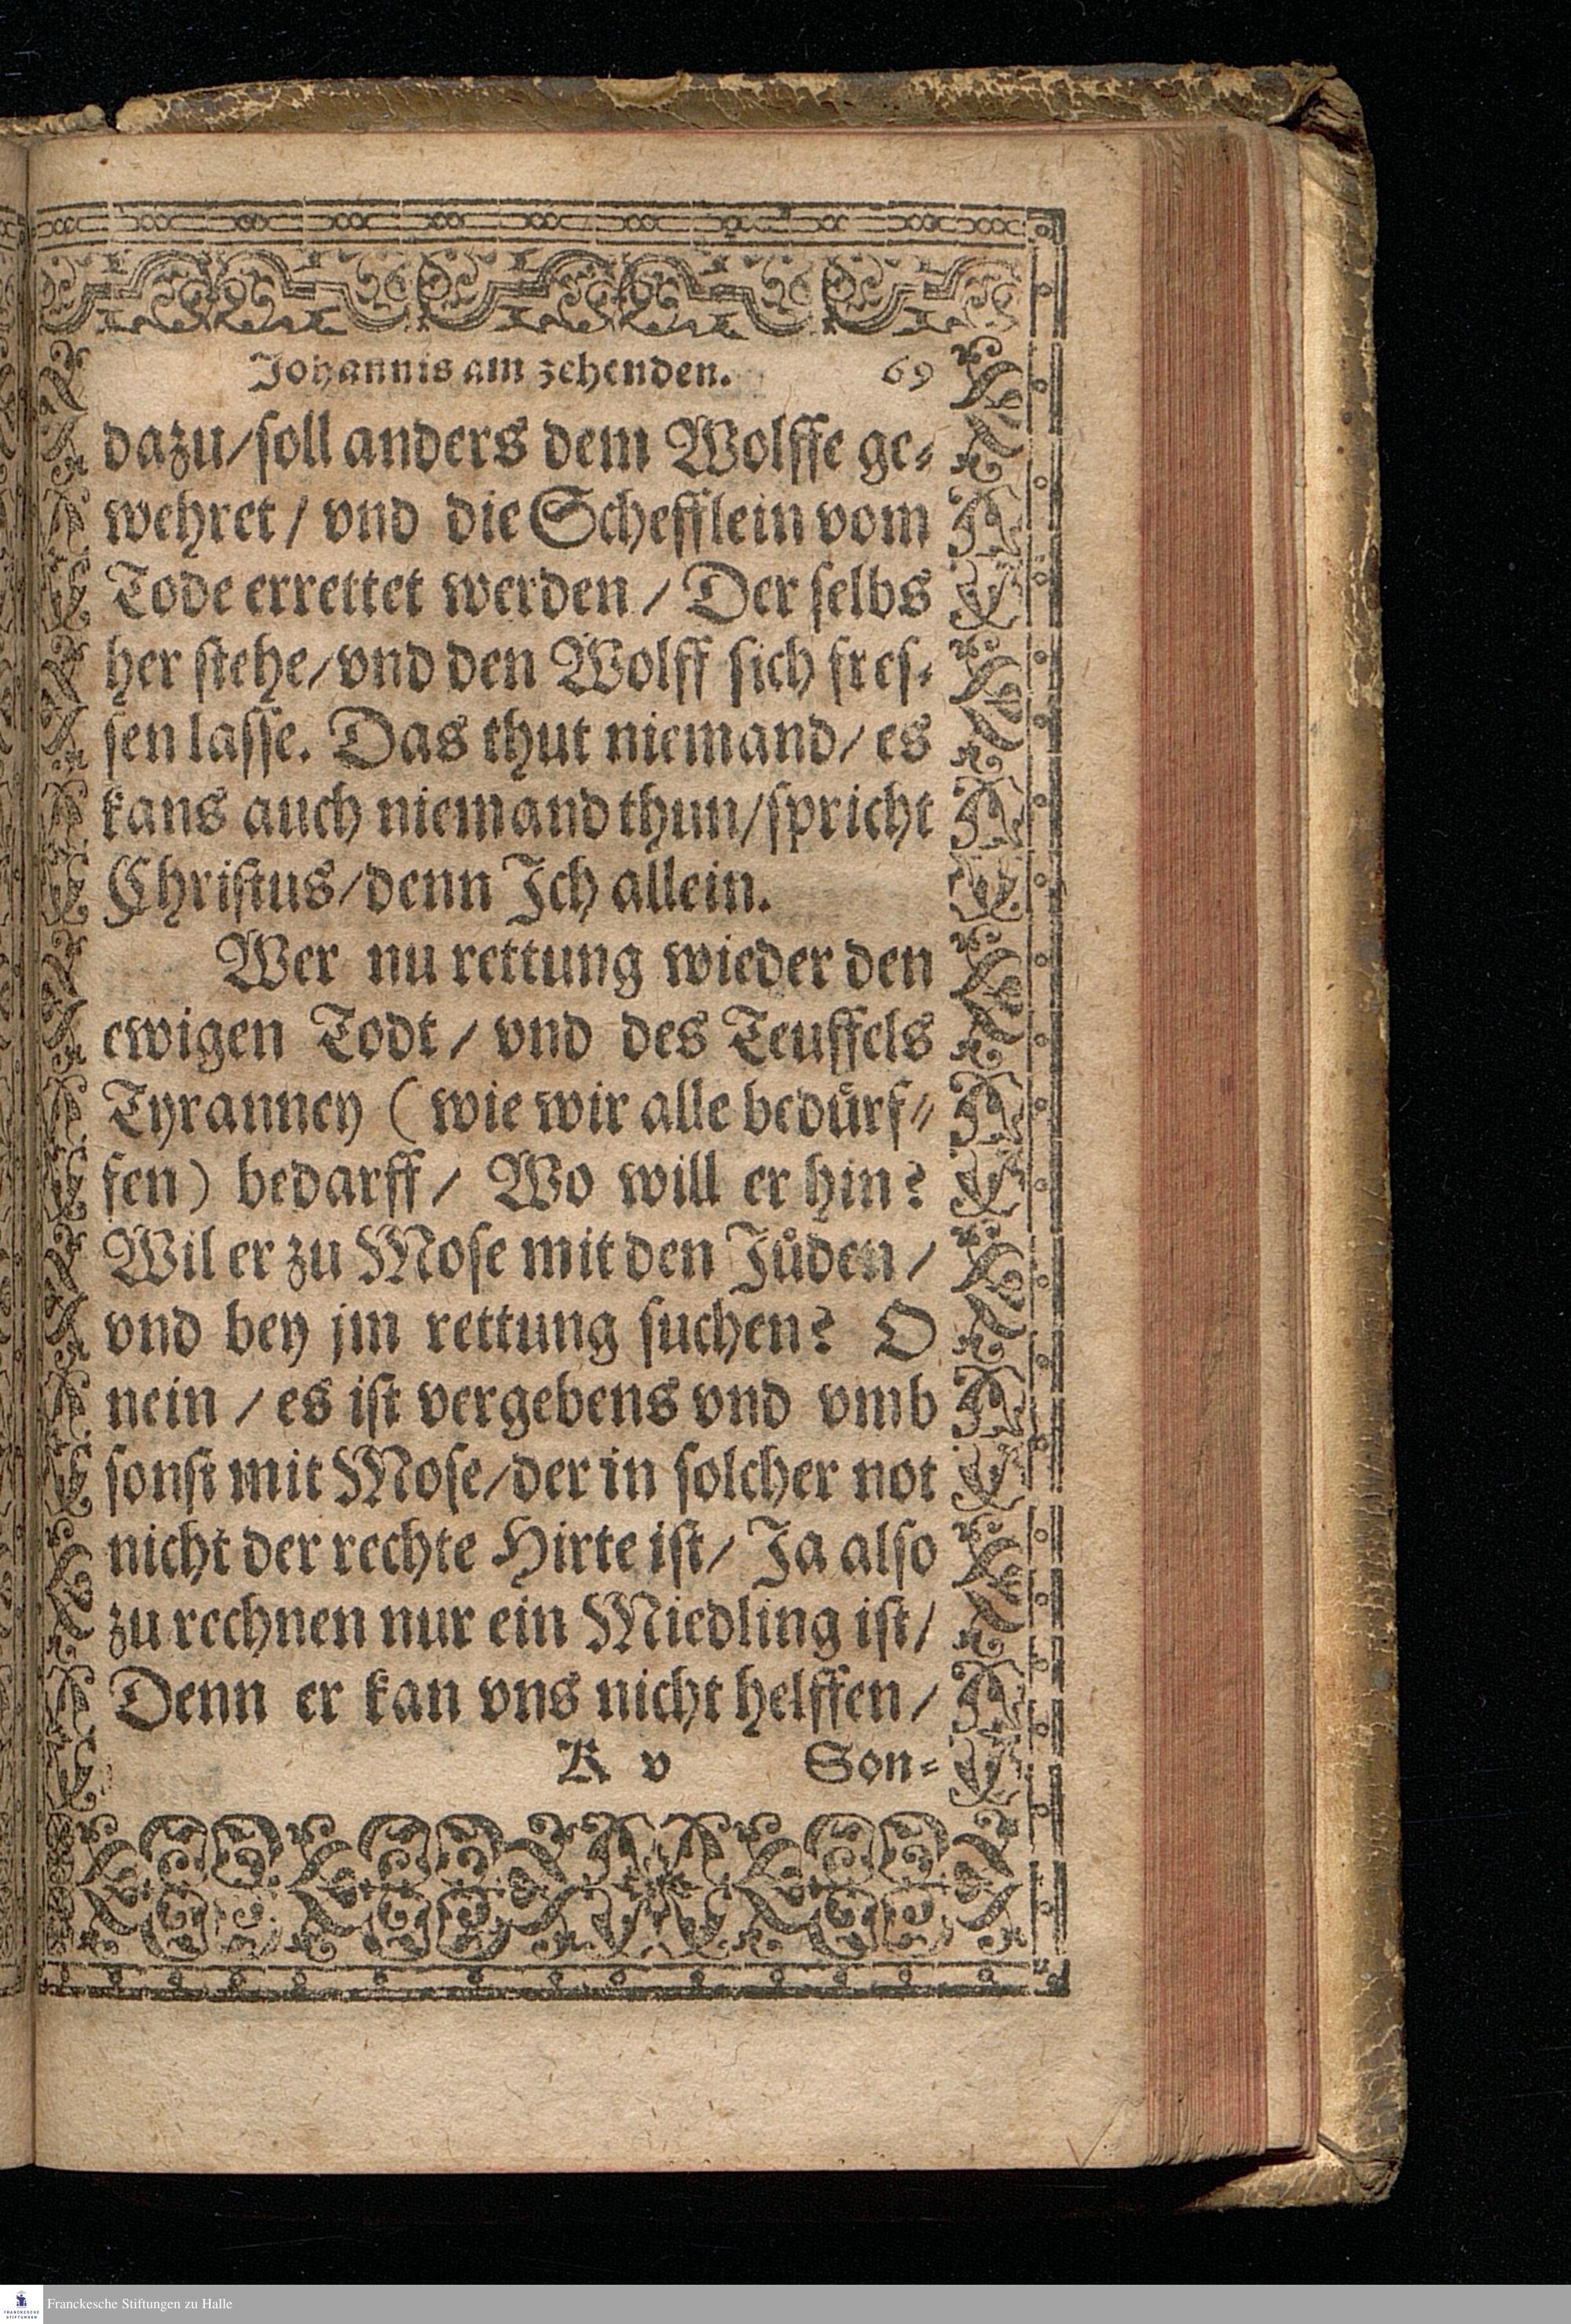 Johannis am zehenden. 69
dazu/soll anders dem Wolffe ge-
wehret / vnd die Schefflein vom
Tode errettet werden / Der selbs
her stehe/vnd den Wolff sich fres-
sen lasse. Das thut niemand/ es
kans auch niemand thun/spricht
Christus/denn Jch allein.
Wer nu rettung wieder den
ewigen Todt / vnd des Teuffels
Tyranney ( wie wir alle bedürf-
fen) bedarff/ Wo will er hin?
Wil er zu Mose mit den Jüden /
vnd bey jm rettung suchen? O
nein / es ist vergebens vnd vmb
sonst mit Mose/der in solcher not
nicht der rechte Hirte ist/ Ja also
zu rechnen nur ein Miedling ist/
Denn er kan vns nicht helffen /
K v Son-
Franckesche Stiftungen zu Halle
FRANCKESCHE
STIFTUNGEN